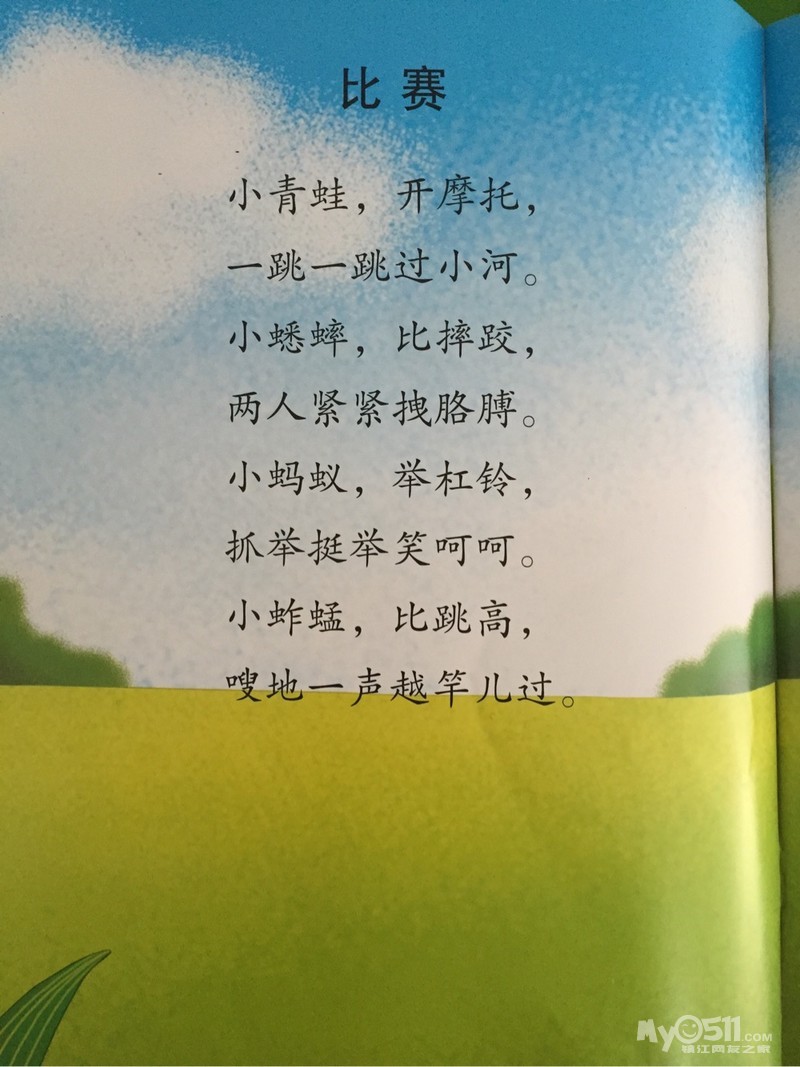 比赛
小青蛙，开摩托，
一跳一跳过小河。
小蟋蟀，比摔跤，
两人紧紧拽胳膊。
小蚂蚁，举杠铃，
抓举挺举笑呵呵。
小蚱蜢，比跳高，
嗖地一声越竿儿过。
My0511.COM
镇江网友之家